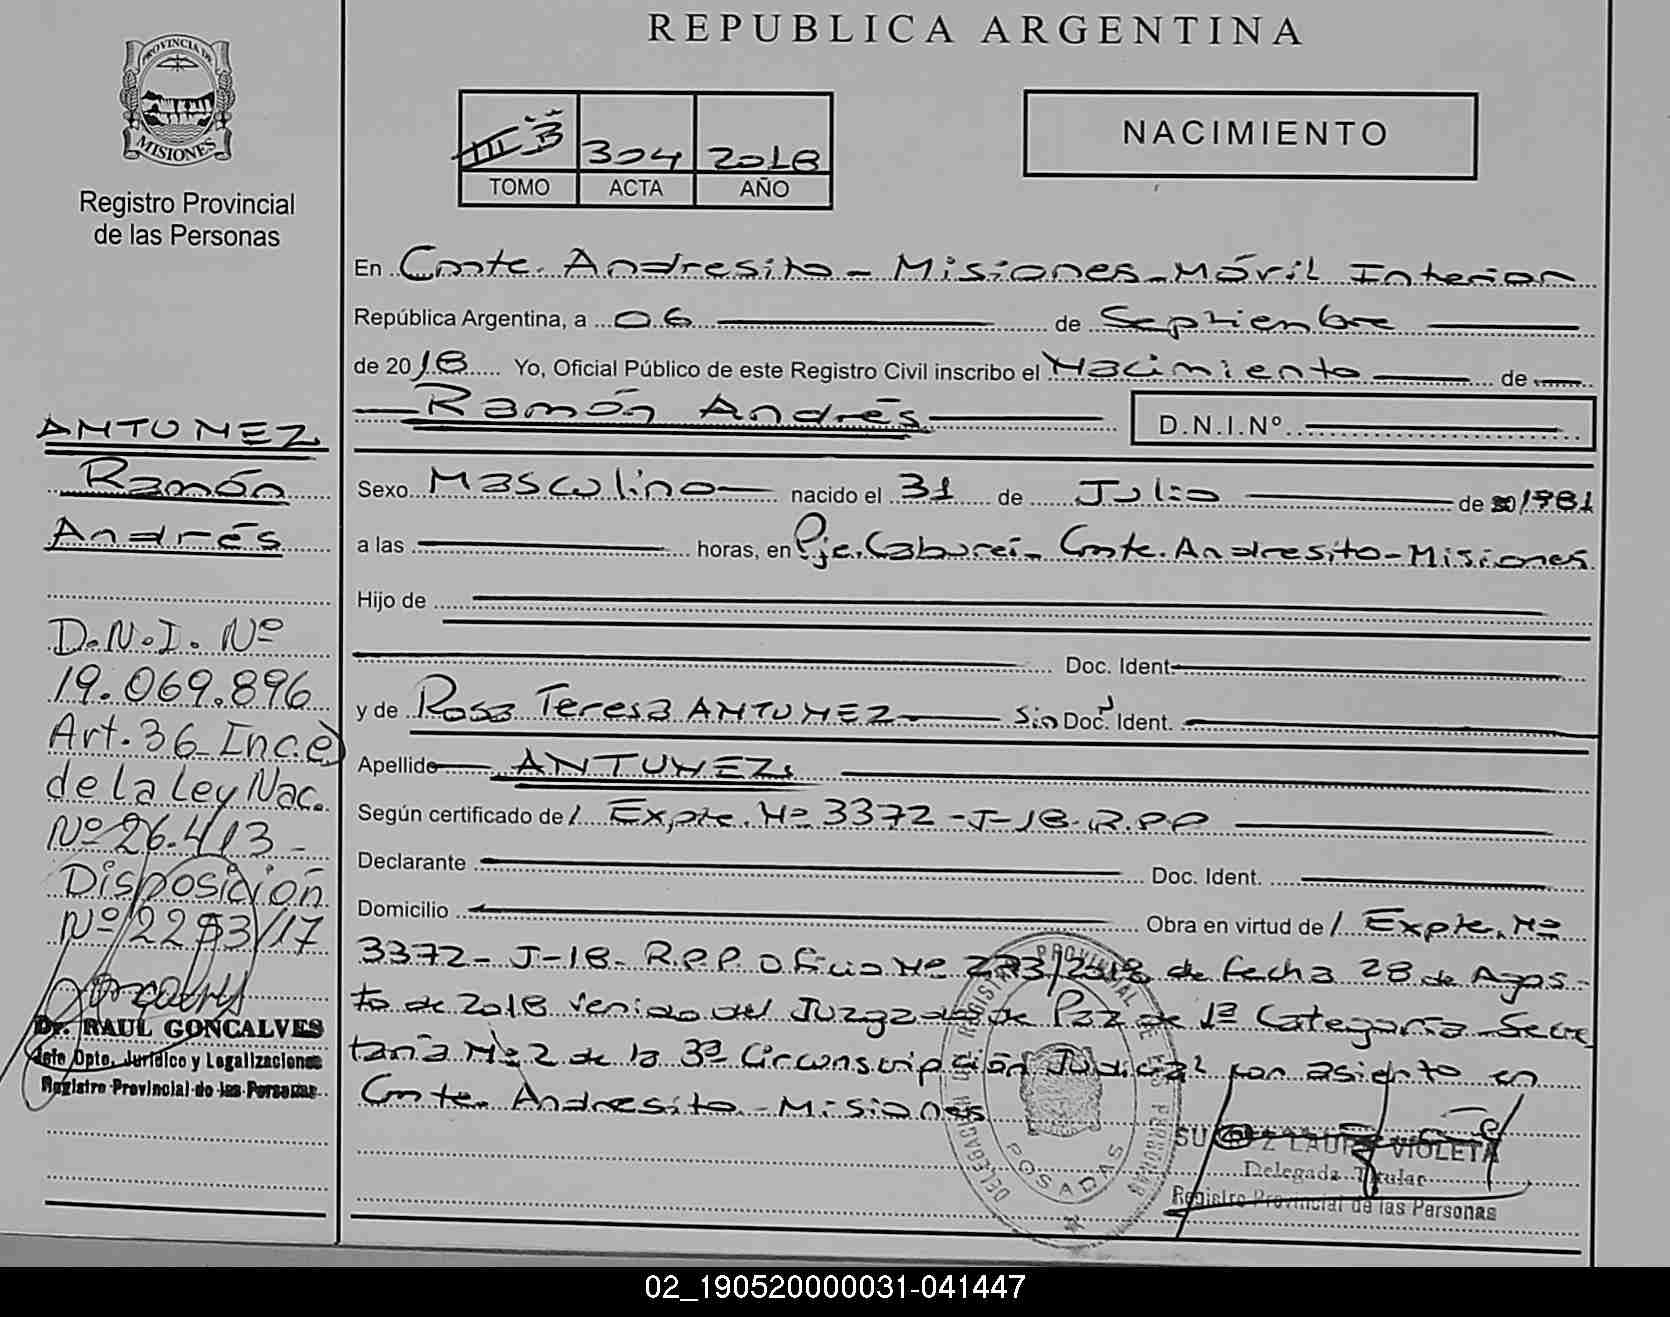 REPUBLICA ARGENTINA
PROVINCIA DE
MISIONES
Registro Provincial
de las Personas
III B 304 2018
TOMO ACTA AÑO
NACIMIENTO
En Cmte. Andresito - Misiones - Móvil Interior
República Argentina, a 06 de Septiembre
de 2018 Yo, Oficial Público de este Registro Civil inscribo el Nacimiento de
Ramón Andrés D.N.I.Nº
Sexo Masculino nacido el 31 de Julio de 1981
a las horas, en Pje. Caburei - Cmte. Andresito - Misiones
Hijo de
Doc. Ident.
y de Rosa Teresa ANTUNEZ Sin Doc. Ident.
Apellido ANTUNEZ
Según certificado de / Expte. Nº 3372 - J - 18 - R.P.P
Declarante Doc. Ident.
Domicilio Obra en virtud de / Expte. Nº
3372 - J - 18 - R.P.P. Oficio Nº /2018 de fecha 28 de Agos-
to de 2018 venido del Juzgado de Paz de 1ª Categoría Secre
taría Nº 2 de la 3ª Circunscripción Judicial con asiento en
Cmte. Andresito - Misiones
ANTUNEZ
Ramón
Andrés
D.N.I. Nº
19.069.896
Art. 36 Inc. e)
de la Ley Nac.
Nº 26.413 -
Disposición
Nº 2293/17
Dr. RAUL GONCALVES
Jefe Dpto. Jurídico y Legalizaciones
Registro Provincial de las Personas
REGISTRO PROVINCIAL DE LAS PERSONAS
POSADAS
LAURA VIOLETA
Delegada Titular
Registro Provincial de las Personas
02_190520000031-041447